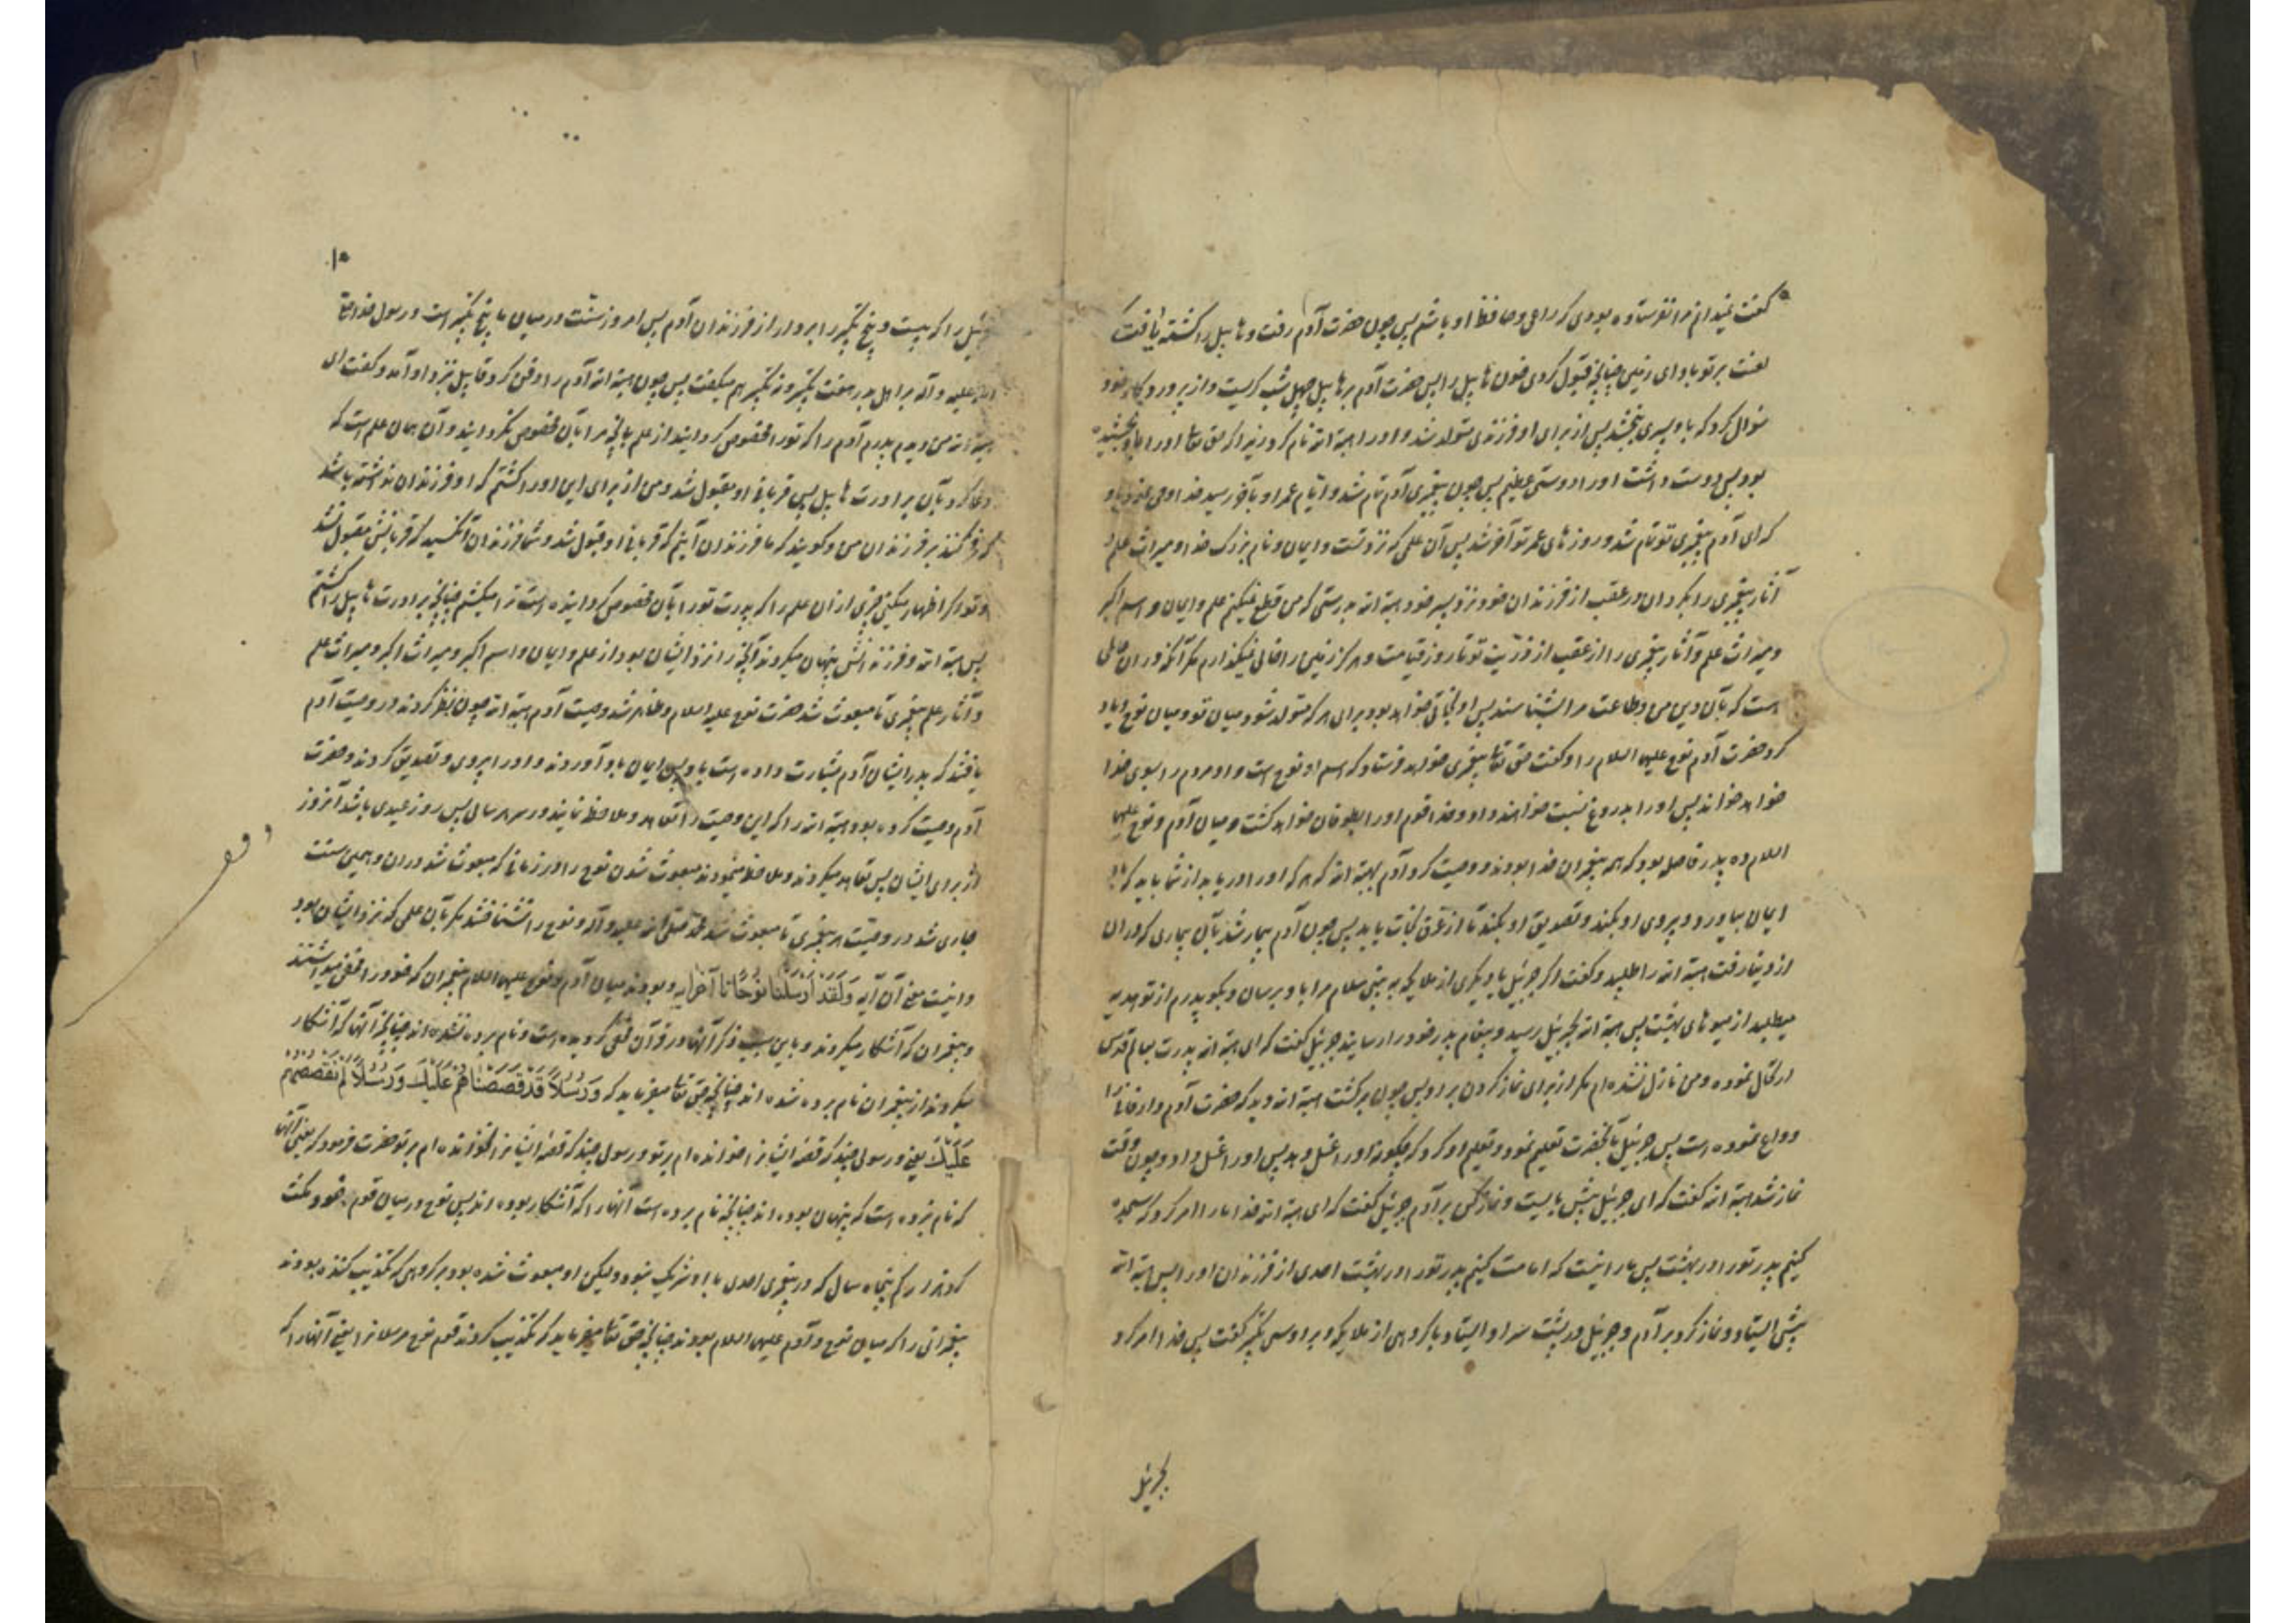 گفت نمیدانم مرا نفرستاده بودی که راعی و حافظ او باشم پس چون حضرت آدم رفت و هابیل را کشته یافت گفت
لعنت بر تو باد ای زمین چنانچه قبول کردی خون هابیل را پس حضرت آدم بر هابیل چهل شب گریست و از پروردگار خود
سؤال کرد که باو پسری ببخشد پس از برای او فرزندی متولد شد و او را هبة الله نام کرد زیرا که حق تعالی او را باو بخشیده
بود پس دوست داشت او را دوستی عظیم پس چون پیغمبری آدم تمام شد و ایام عمر او بآخر رسید خدا وحی نمود باو
که ای آدم پیغمبری تو تمام شد و روزهای عمر تو آخر شد پس آن علمی که نزد تست و ایمان و نام بزرگ خدا و میراث علم و
آثار پیغمبری را بگردان در عقب از فرزندان خود نزد پسر خود هبة الله بدرستی که من قطع نمیکنم علم و ایمان و اسم اکبر
و میراث علم و آثار پیغمبری را از عقب از ذریت تو تا روز قیامت و هرگز زمین را خالی نمیگذارم مگر آنکه در آن عالمی
است که بآن دین من و طاعت مرا بشناسند پس او نجاتی خواهد بود برای هر که متولد شود میان تو و میان نوح و یاد
کرد حضرت آدم نوح علیهما السلام را و گفت حق تعالی پیغمبری خواهد فرستاد که اسم او نوح است و او مردم را بسوی خدا
خواهد خواند پس او را بدروغ نسبت خواهند داد و خدا قوم او را بطوفان خواهد کشت و میان آدم و نوح علیهما
السلام ده پدر فاصله بود که همه پیغمبران خدا بودند و وصیت کرد آدم بهبة الله که هر که او را دریابد از شما باید که باو
ایمان بیاورد و پیروی او بکند و تصدیق او بکند تا از غرق نجات یابد پس چون آدم بیمار شد بآن بیماری که در آن
از دنیا رفت هبة الله را طلبید و گفت اگر جبرئیل یا دیگری از ملائکه به بینی سلام مرا باو برسان و بگو پدرم از تو هدیه
میطلبد از میوهای بهشت پس هبة الله بجبرئیل رسید و پیغام پدر خود را رسانید جبرئیل گفت که ای هبة الله پدرت بعالم قدس
ارتحال نموده و من نازل نشده‌ام مگر از برای نماز کردن بر او پس چون برگشت هبة الله دید که حضرت آدم دار فانی را
وداع نموده است پس جبرئیل بآنحضرت تعلیم نمود و تعلیم او کرد که چگونه او را غسل بدهد پس او را غسل داد و چون وقت
نماز شد هبة الله گفت که ای جبرئیل پیش بایست و نماز کن بر آدم جبرئیل گفت که ای هبة الله خدا ما را امر کرد که سجده
کنیم پدر تو را در بهشت پس ما را نیست که امامت کنیم پدر تو را در بهشت احدی از فرزندان او را پس هبة الله
پیش ایستاد و نماز کرد بر آدم و جبرئیل در پشت سر او ایستاد با گروهی از ملائکه و بر او سی تکبیر گفت پس خدا امر کرد
جبرئیل
۱۰
جبرئیل را که بیست و پنج تکبیر را بردارد از فرزندان آدم پس امروز سنت در میان ما پنج تکبیر است و رسول خدا صلی
الله علیه و آله بر اهل بدر هفت تکبیر و نه تکبیر هم میگفت پس چون هبة الله آدم را دفن کرد قابیل نزد او آمد و گفت ای
هبة الله من دیدم پدرم آدم را که تو را مخصوص گردانید از علم بآنچه مرا بآن مخصوص نگردانید و آن همان علم است که
دعا کرد بآن برادرت هابیل پس قربانی او مقبول شد و من از برای این او را کشتم که او فرزندان نداشته باشد
که فخر کنند بر فرزندان من و گویند که ما فرزندان آنیم که قربانی او قبول شد و شما فرزندان آنکسید که قربانیش مقبول نشد
و تو اگر اظهار میکنی چیزی از آن علم را که پدرت تو را بآن مخصوص گردانیده است ترا میکشم چنانچه برادرت هابیل را کشتم
پس هبة الله و فرزندانش پنهان میکردند آنچه را نزد ایشان بود از علم و ایمان و اسم اکبر و میراث اکبر و میراث علم
و آثار علم پیغمبری تا مبعوث شد حضرت نوح علیه السلام و ظاهر شد وصیت آدم هبة الله چون نظر کردند در وصیت آدم
یافتند که پدر ایشان آدم بشارت داده است باو پس ایمان باو آوردند و او را پیروی و تصدیق کردند و حضرت
آدم وصیت کرده بود هبة الله را که این وصیت را تعاهد و ملاحظه نمایند در سر هر سالی پس روز عیدی باشد آنروز
از برای ایشان پس تعاهد میکردند و ملاحظه مینمودند مبعوث شدن نوح را در زمانی که مبعوث شد در آن و همین سنت
جاری شد در وصیت هر پیغمبری تا مبعوث شد محمد صلی الله علیه و آله و نوح را نشناختند مگر بآن علمی که نزد ایشان بود
و اینست معنی آن آیه وَلَقَدْ اَرْسَلْنَا نُوحًا تا آخر آیه و بودند میان آدم و نوح علیهما السلام پیغمبران که خود را مخفی میداشتند
و پیغمبران که آشکار میکردند و باین سبب ذکر آنها در قرآن مخفی گردیده است و نام برده نشده‌اند چنانچه آنها که آشکار
میکردند از پیغمبران نام برده شده‌اند چنانچه حق تعالی میفرماید که وَ رُسُلًا قَدْ قَصَصْنَاهُمْ عَلَیْکَ وَ رُسُلًا لَمْ نَقْصُصْهُمْ
عَلَیْکَ یعنی و رسولی چند که قصهٔ ایشانرا خوانده‌ام بر تو و رسولی چند که قصهٔ ایشانرا نخوانده‌ام بر تو حضرت فرمود که یعنی آنها
که نام نبرده است که پنهان بوده‌اند چنانچه نام برده است آنها را که آشکار بوده‌اند پس نوح در میان قوم خود مکث
کرد هزار کم پنجاه سال که در پیغمبری احدی با او شریک نبود ولیکن او مبعوث شده بود بر گروهی که تکذیب کننده بودند
پیغمبرانی را که میان نوح و آدم علیهما السلام بودند چنانچه حق تعالی میفرماید که تکذیب کردند قوم نوح مرسلانرا یعنی آنها را که